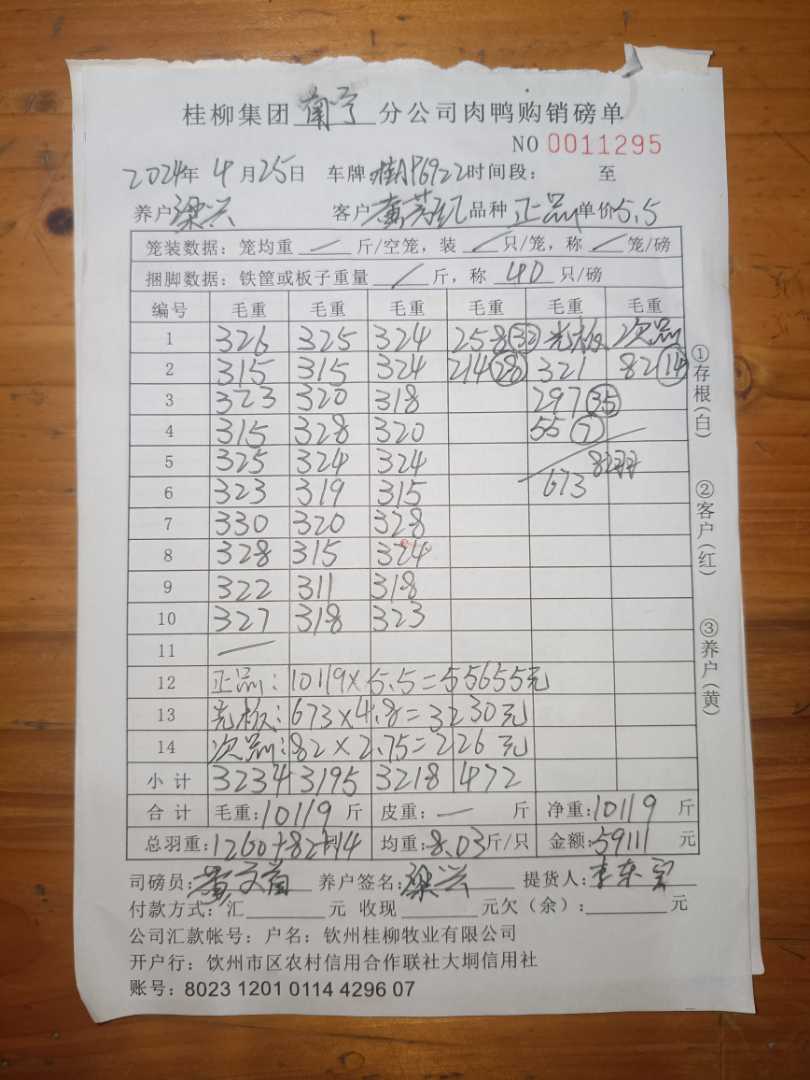 桂柳集团 南宁 分公司肉鸭购销磅单
NO 0011295
2024年 4月25日 车牌 桂AP6922 时间段: 至
养户 梁兴 客户 黄 品种 正品 单价5.5
笼装数据: 笼均重 — 斤/空笼, 装 / 只/笼, 称 / 笼/磅
捆脚数据: 铁筐或板子重量 / 斤, 称 40 只/磅
编号 毛重 毛重 毛重 毛重 毛重 毛重
1 326 325 324 258(32) 光板 次品
2 315 315 324 214(28) 321 82(14)
3 323 320 318 297(35)
4 315 328 320 55(7)
5 325 324 324 82羽
6 323 319 315 673
7 330 320 328
8 328 315 324
9 322 311 318
10 327 318 323
11 —
12 正品: 10119×5.5=55655元
13 光板: 673×4.8=3230元
14 次品: 82×2.75=226元
小计 3234 3195 3218 472
合计 毛重:10119斤 皮重: — 斤 净重:10119斤
总羽重:1260+82+14 均重:8.03斤/只 金额:59111元
司磅员: 黄文 养户签名: 梁兴 提货人: 李东
付款方式: 汇 元 收现 元欠(余): 元
公司汇款帐号: 户名: 钦州桂柳牧业有限公司
开户行: 饮州市区农村信用合作联社大垌信用社
账号: 8023 1201 0114 4296 07
①存根(白)
②客户(红)
③养户(黄)